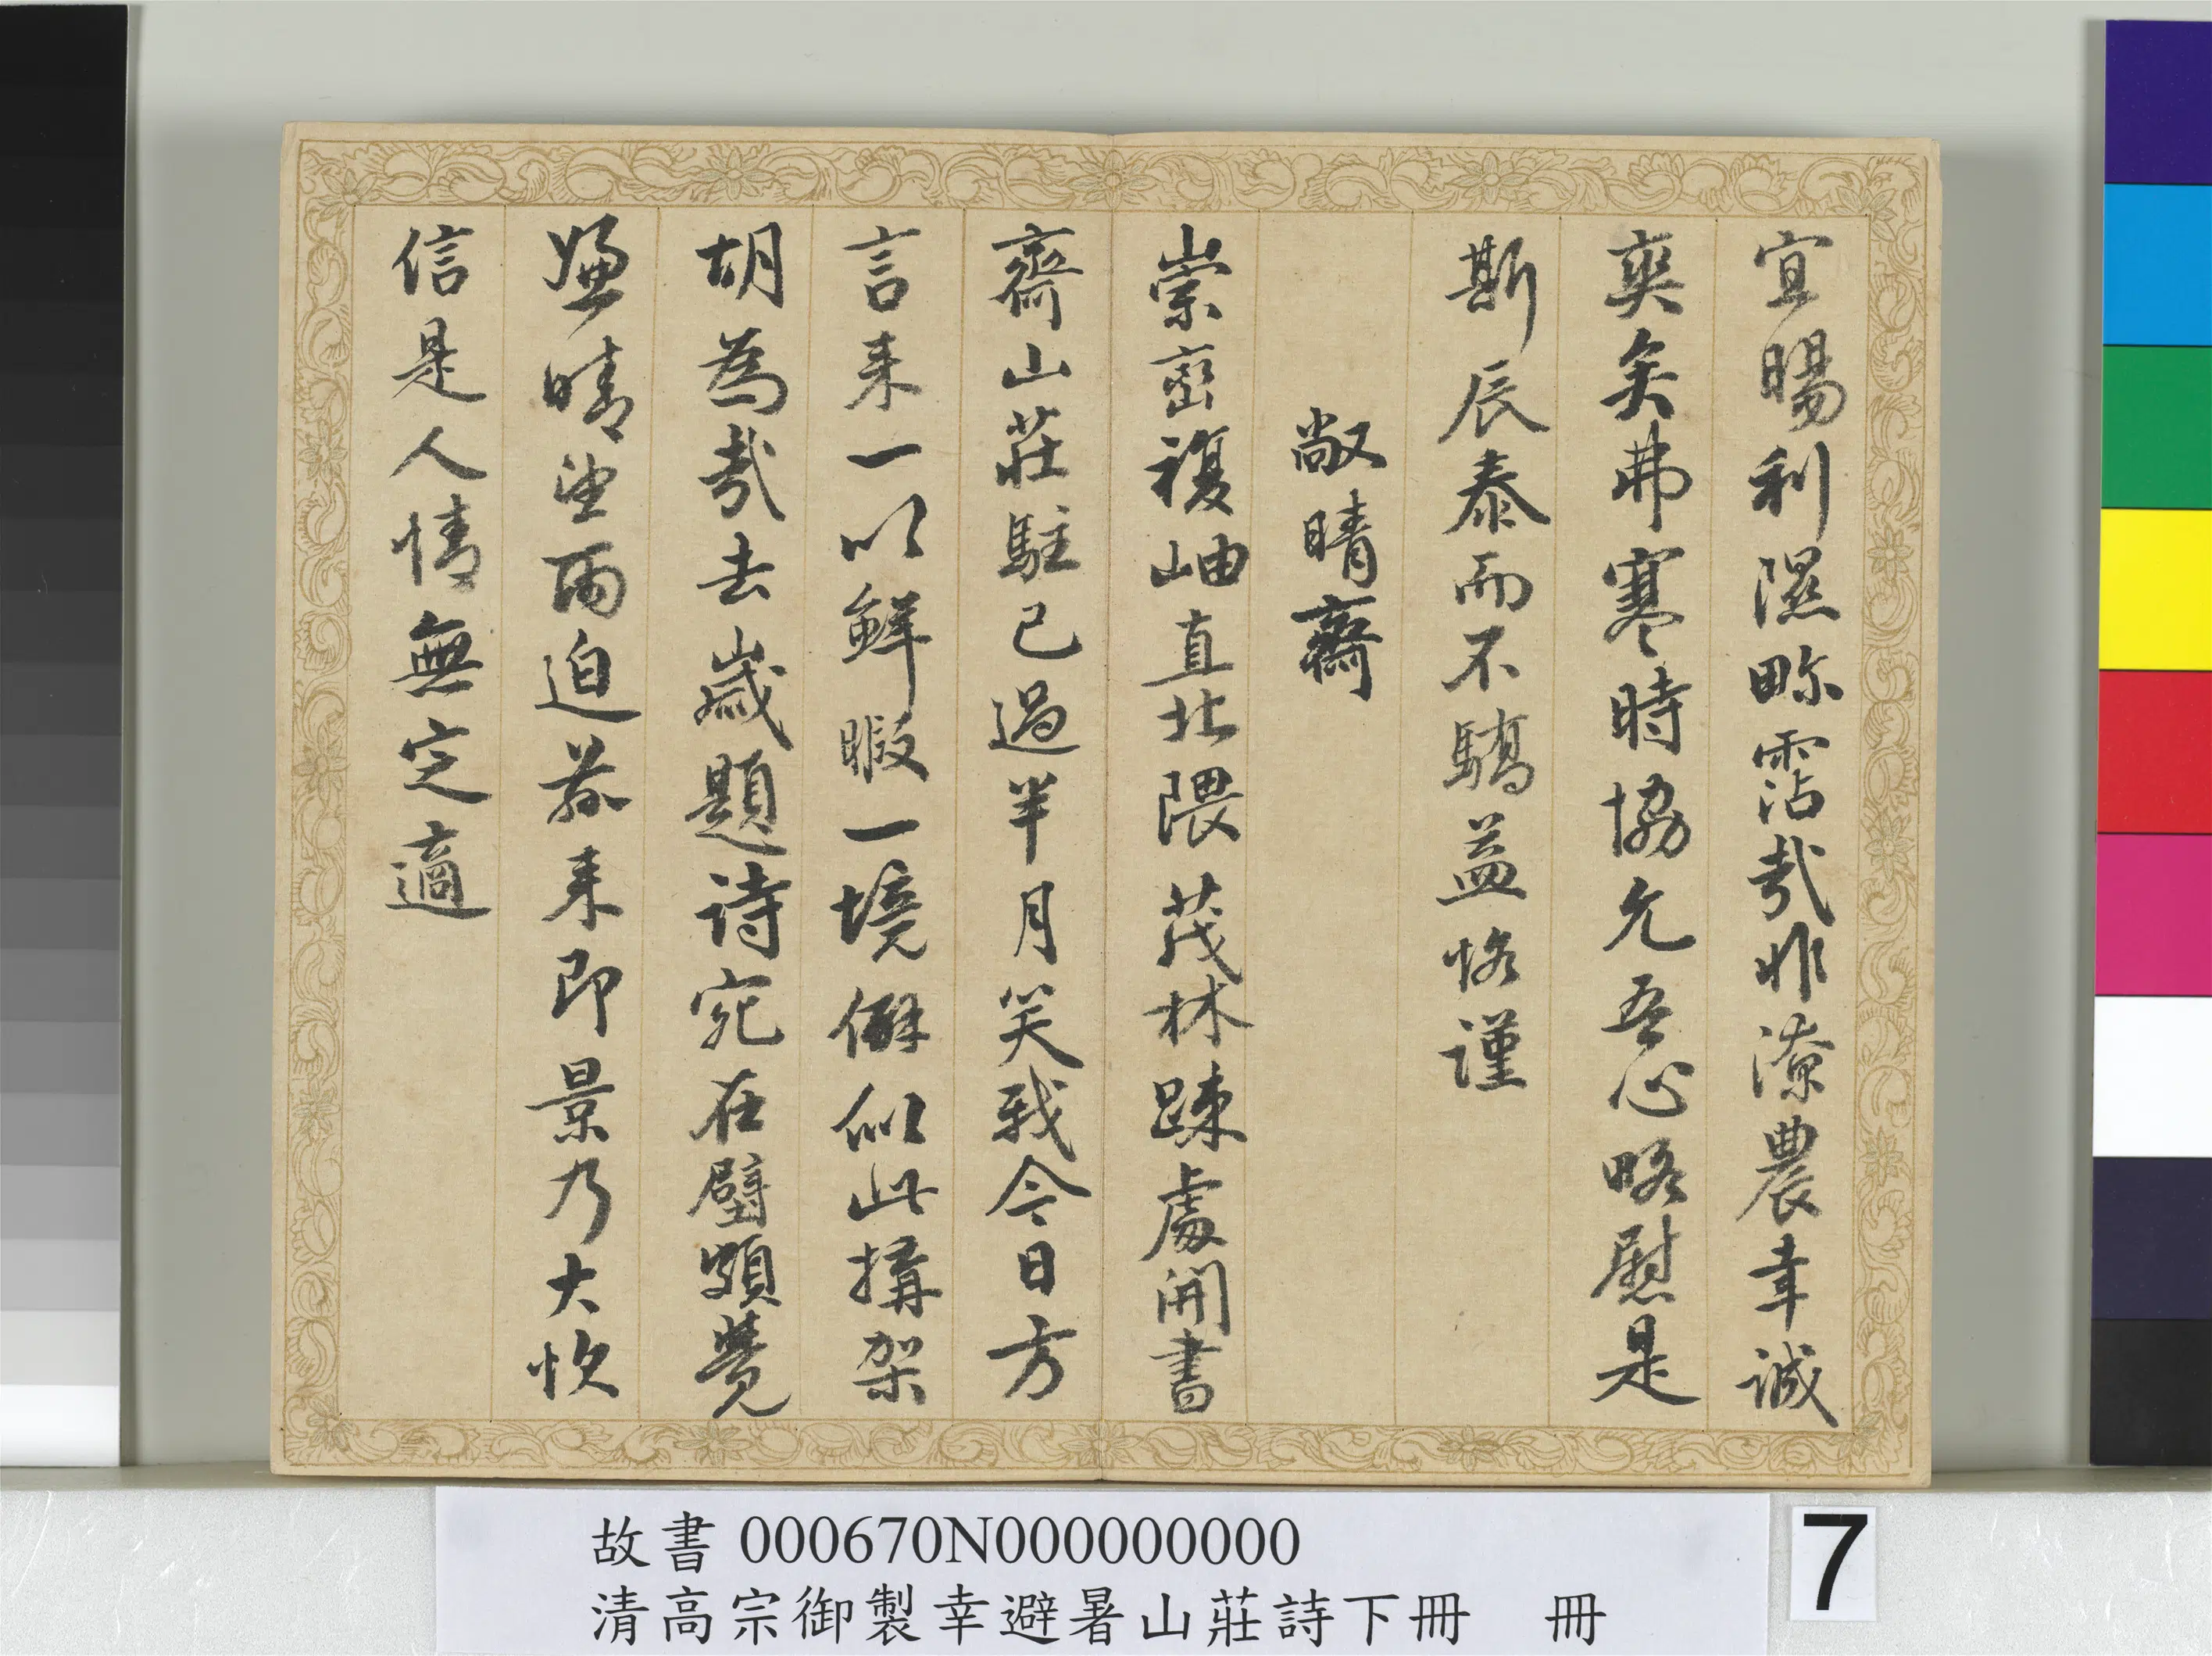 宜暘利隰畛霑哉非潦農幸誠
奕矣弗寒時協允吾心略慰是
斯辰泰而不驕益恪謹
敞晴齋
崇巒複岫直北隈茂林疎處開書
齋山莊駐已過半月笑我今日方
言来一以鮮暇一境僻似此搆架
胡為哉去歲題詩宛在壁頗覺
嫌晴望雨迫茲来即景乃大快
信是人情無定適
故書 000670N000000000
清高宗御製幸避暑山莊詩下冊 冊
7